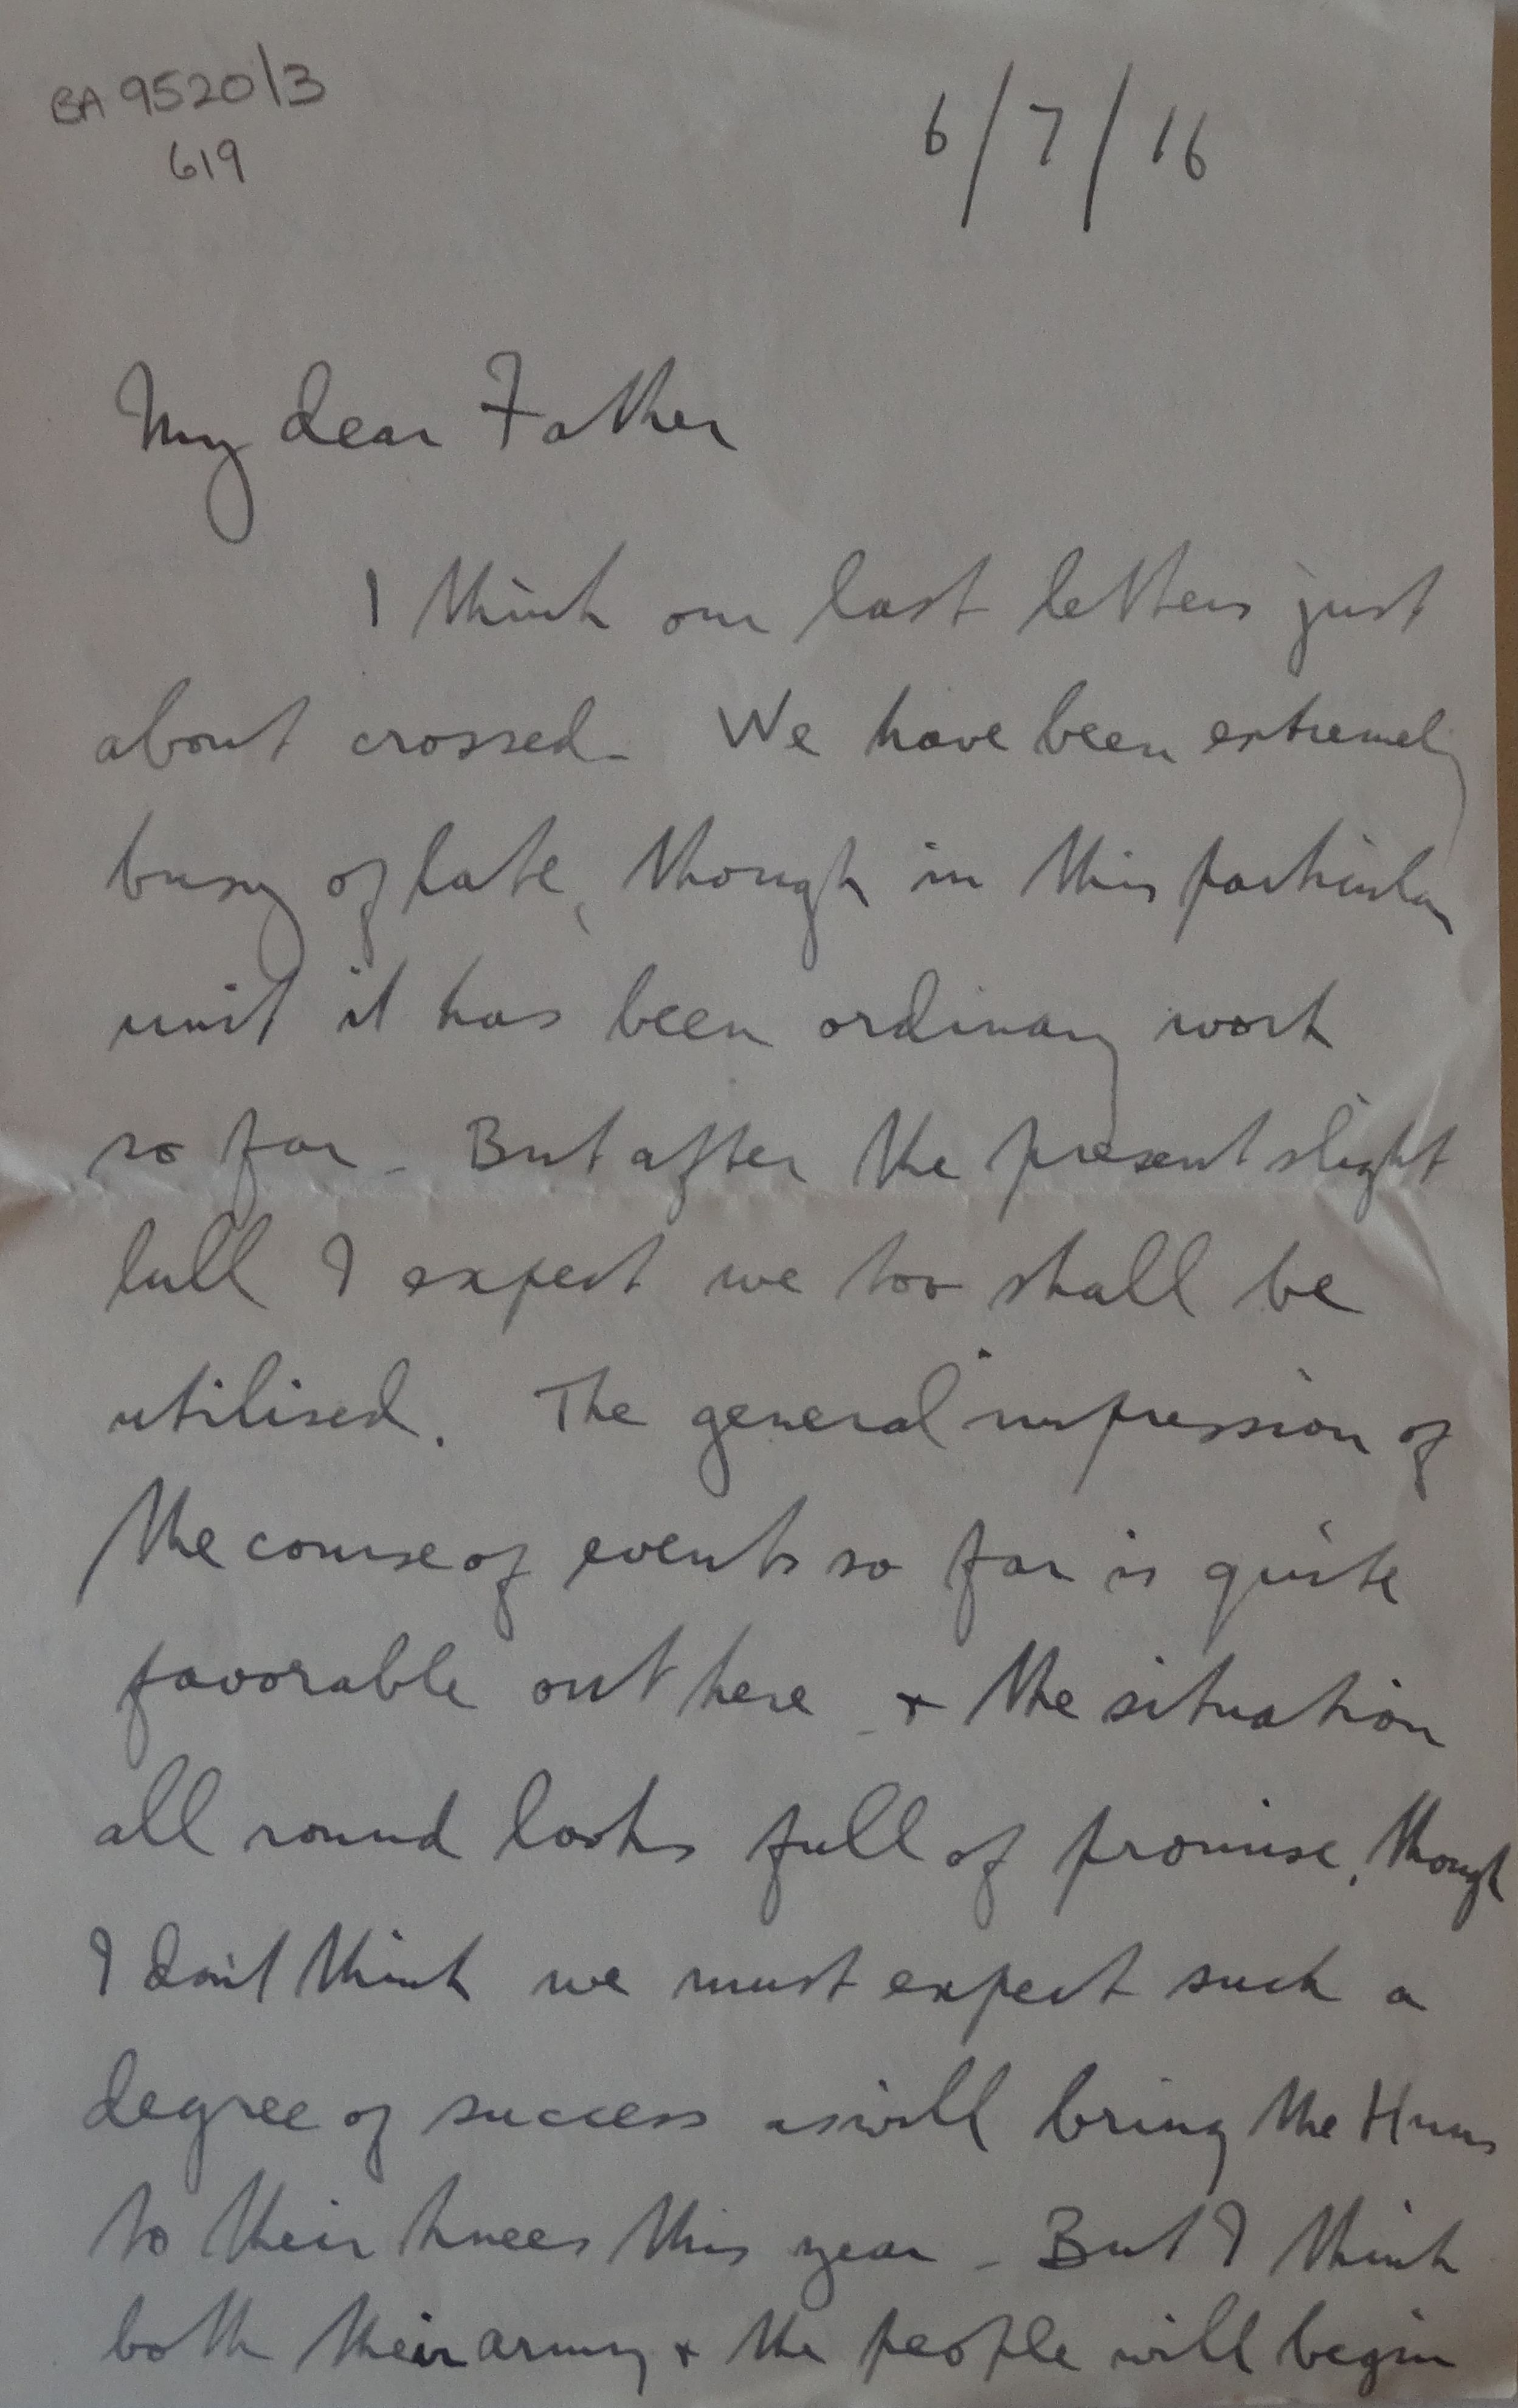 BA 9520/3
619
6/7/16
My dear Father
I think our last letters just
about crossed - We have been extremely
busy of late, though in this particular
unit it has been ordinary work
so far - But after the present slight
lull I expect we too shall be
utilised. The general impression of
the course of events so far is quite
favorable out here - + the situation
all round looks full of promise, though
I don't think we must expect such a
degree of success as will bring the Huns
to their knees this year - But I think
both their army + the people will begin